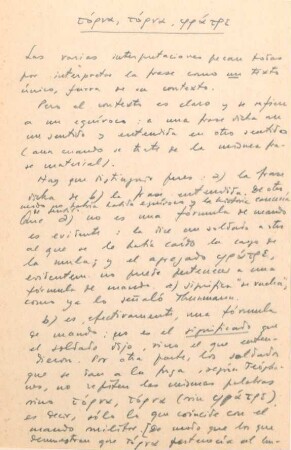 τόρνα, τόρνα, φράτρε
Las varias interpretaciones pecan todas
por interpretar la frase como un texto
único, fuera de su contexto.
Pero el contexto es claro y se refiere
a un equívoco: a una frase dicha en
un sentido y entendida en otro sentido
(aun cuando se trate de la misma fra-
se material).
Hay que distinguir pues: a) la frase
dicha de b) la frase entendida. De otro
modo no habría equívoco y la historia
Que a) no es una fórmula de mando
es evidente: la dice un soldado a otro
al que se le había caído la carga de
la mula; y el agregado φράτρε,
evidentem. no puede pertenecer a una
fórmula de mando. a) significa "se vuelca",
como ya lo señaló Thunmann.
b) es, efectivamente, una fórmula
de mando: no es el significado que
el soldado dijo, sino el que enten-
dieron. Por otra parte, los soldados
que se dan a la fuga, según Teófa-
nes, no repiten las mismas palabras
sino τόρνα, τόρνα (sin φράτρε)
es decir, sólo lo que coincide con el
mando militar. De modo que lo que
demuestran que τόρνα pertenecía al